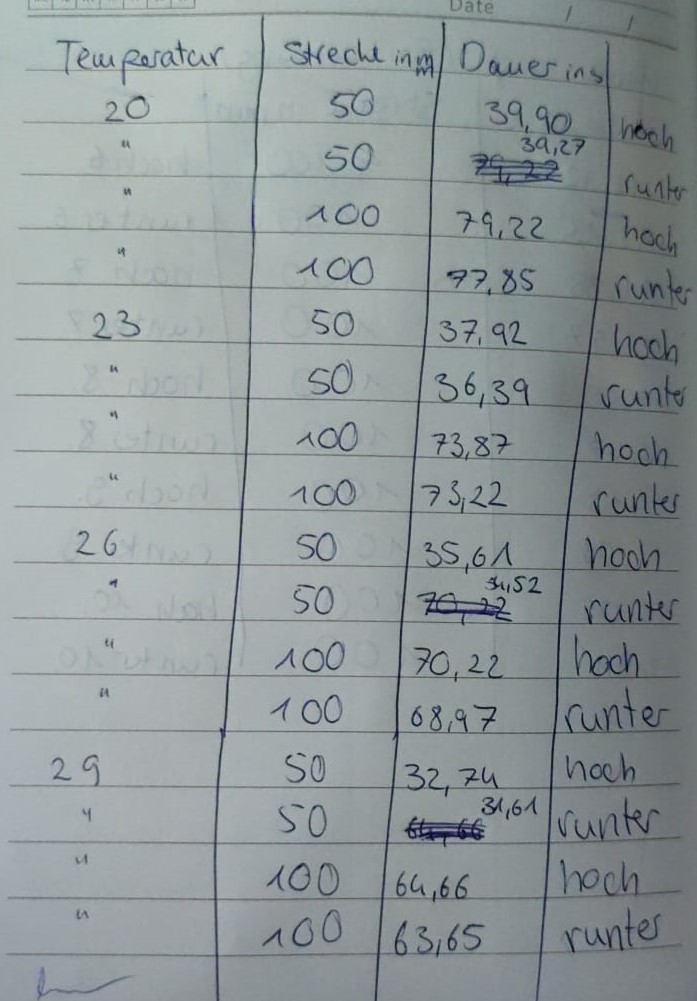 Date / /
Temperatur Streche in m Dauer in s
20 50 39,90 hoch
" 50 39,27 runter
" 100 79,22 hoch
" 100 77,85 runter
23 50 37,92 hoch
" 50 36,39 runter
" 100 73,87 hoch
" 100 73,22 runter
26 50 35,61 hoch
" 50 34,52 runter
" 100 70,22 hoch
" 100 68,97 runter
29 50 32,74 hoch
" 50 31,61 runter
" 100 64,66 hoch
" 100 63,65 runter